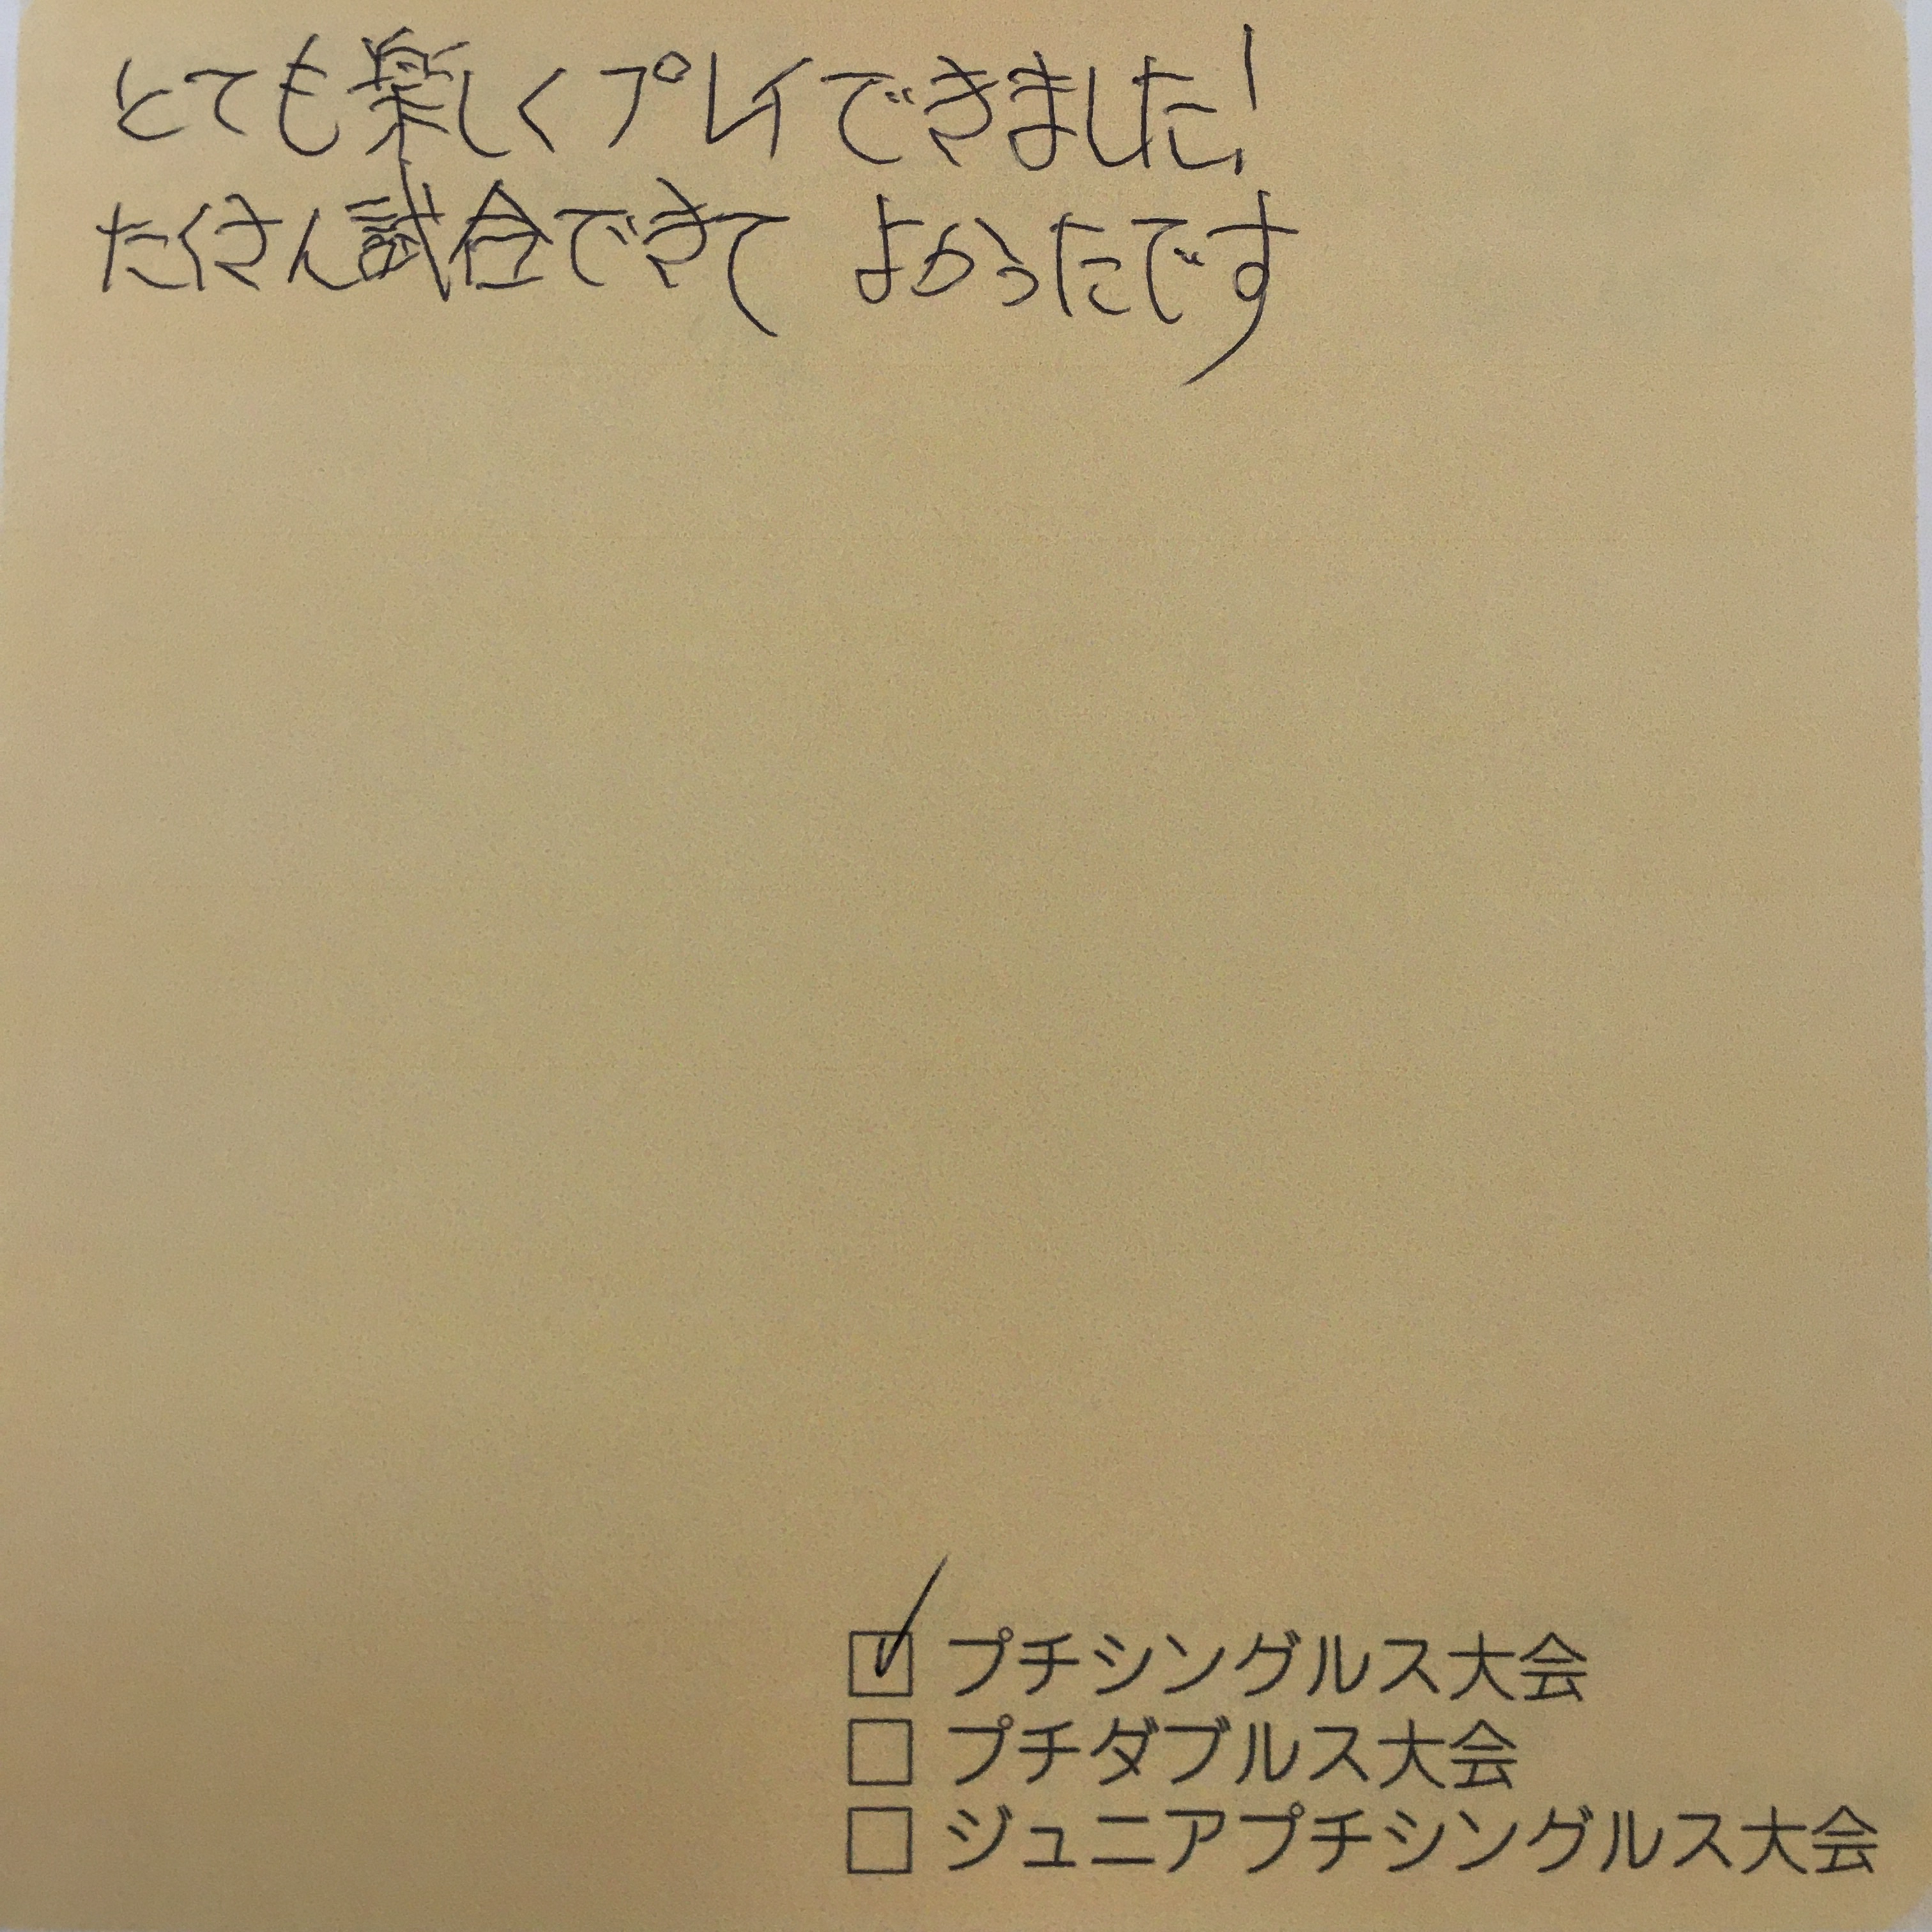 とても楽しくプレイできました!
たくさん試合できて よかったです
☑ プチシングルス大会
☐ プチダブルス大会
☐ ジュニアプチシングルス大会